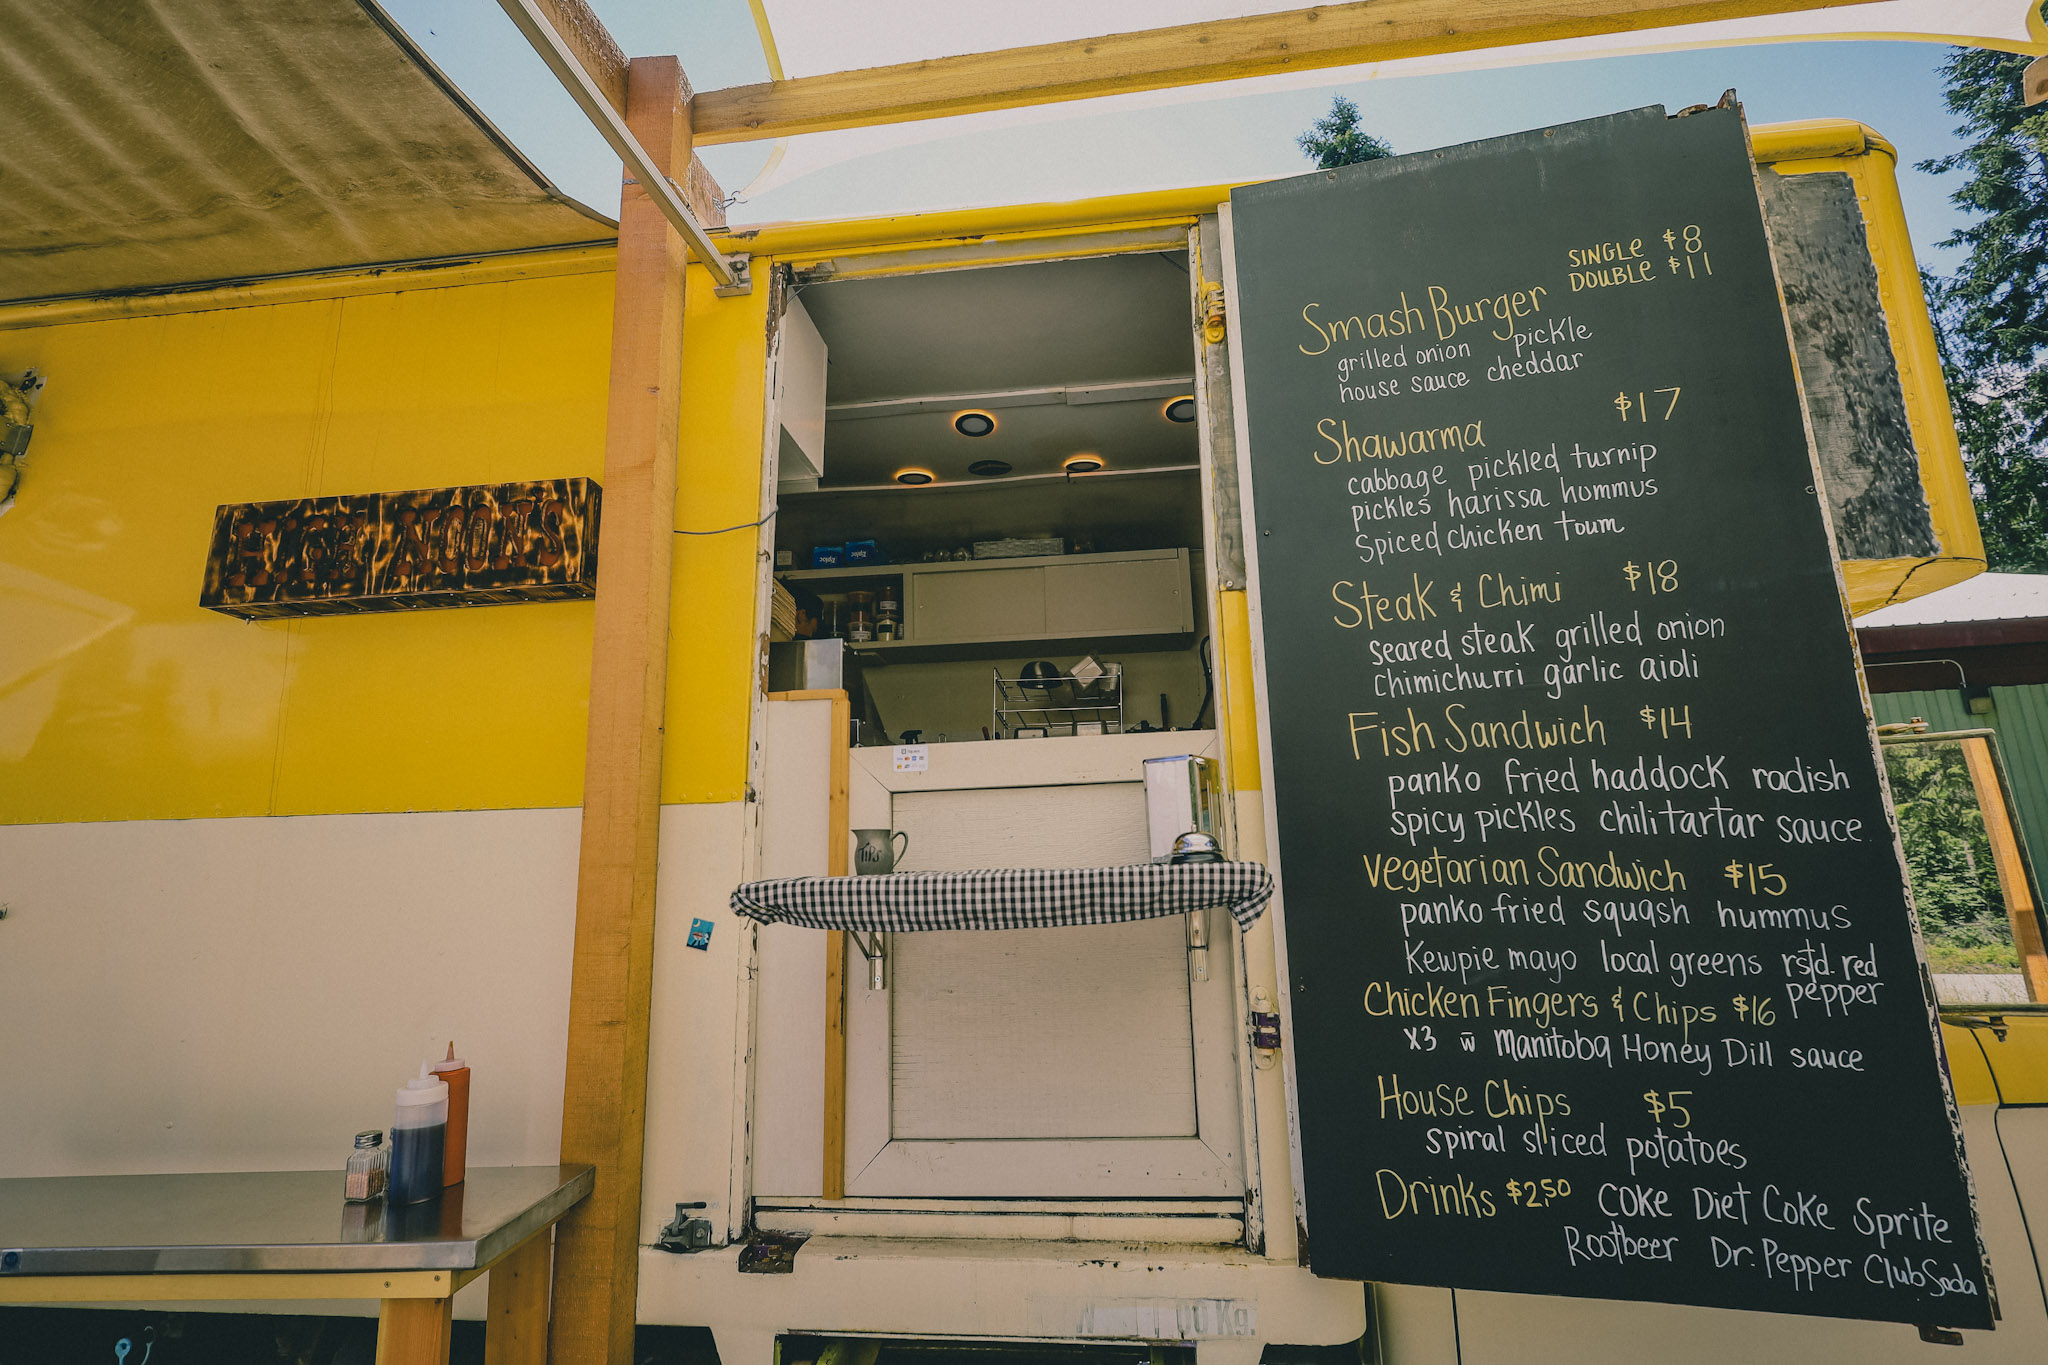 HIGH NOON'S
Ziploc
Ziploc
TIPS
SINGLE $8
DOUBLE $11
Smash Burger
grilled onion pickle
house sauce cheddar
Shawarma $17
cabbage pickled turnip
pickles harissa hummus
Spiced chicken toum
Steak & Chimi $18
seared steak grilled onion
chimichurri garlic aioli
Fish Sandwich $14
panko fried haddock radish
spicy pickles chili tartar sauce
Vegetarian Sandwich $15
panko fried squash hummus
Kewpie mayo local greens rstd. red
pepper
Chicken Fingers & Chips $16
x3 w̄ Manitoba Honey Dill sauce
House Chips $5
spiral sliced potatoes
Drinks $2.50 Coke Diet Coke Sprite
Rootbeer Dr. Pepper Club Soda
Kg.